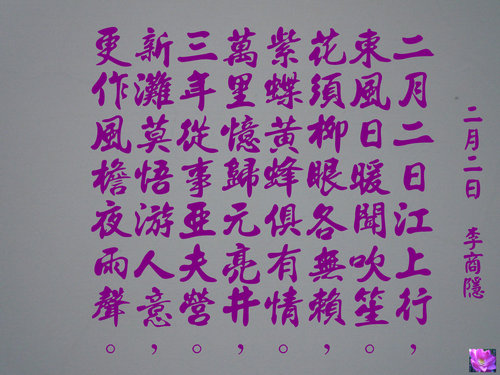 二月二日　李商隱
二月二日江上行，
東風日暖聞吹笙。
花須柳眼各無賴，
紫蝶黃蜂俱有情。
萬里憶歸元亮井，
三年從事亞夫營。
新灘莫悟游人意，
更作風檐夜雨聲。